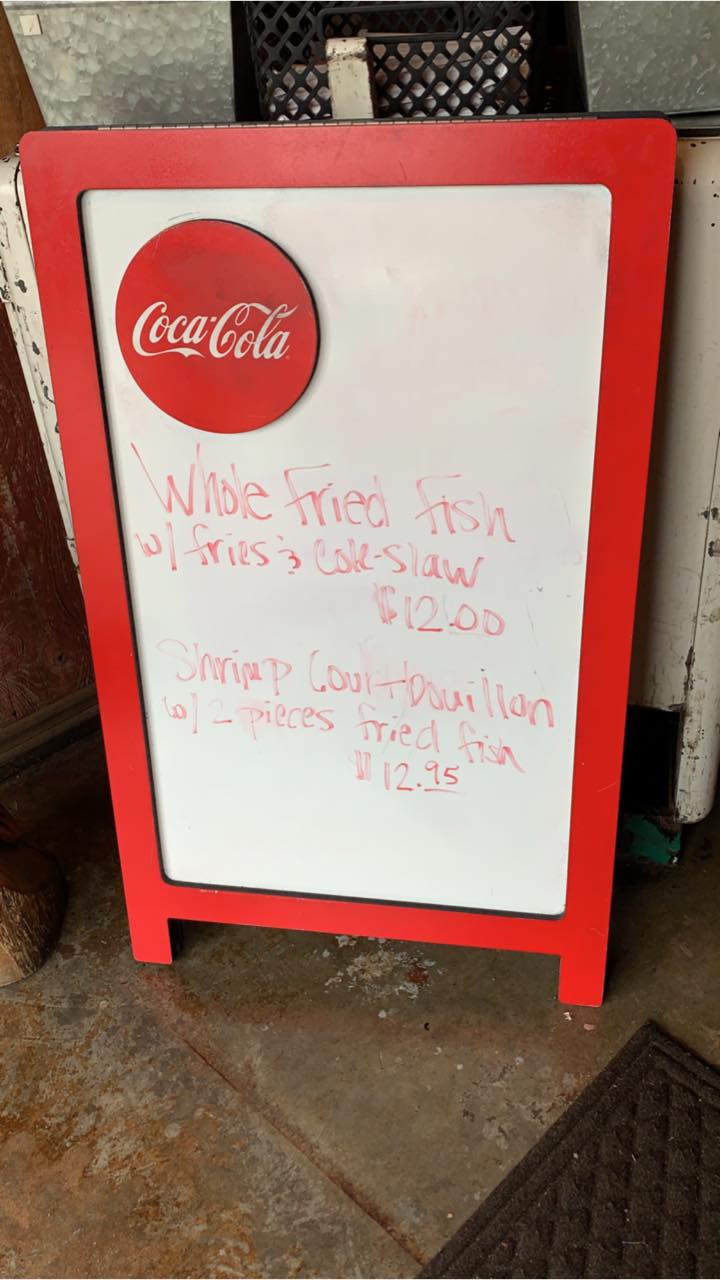 Coca-Cola
Whole Fried Fish
w/ fries & Cole-slaw
$12.00
Shrimp Courtbouillon
w/ 2 pieces fried fish
$12.95